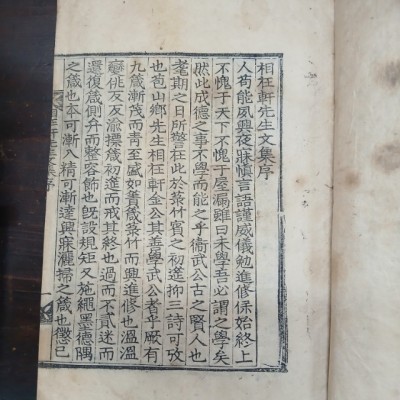 相在軒先生文集序
人苟能夙興夜寐愼言語謹威儀勉進修保始終上
不愧于天下不愧于屋漏雖曰未學吾必謂之學矣
然此成德之事不學而能之乎衛武公古之賢人也
耄期之日所警在此於菉竹賓之初進抑三詩可攷
也苞山鄕先生相在軒金公其善學武公者乎厥有
九箴漸茂而靑至盛如簀箴菉竹而興進修也溫溫
嬖俳反反渝揲箴初進而戒其終也過而不貳迷而
還復箴側弁而整容飾也旣設規矩又施繩墨德隅
之箴也本可漸入精可漸達興寐灑掃之箴也懲已